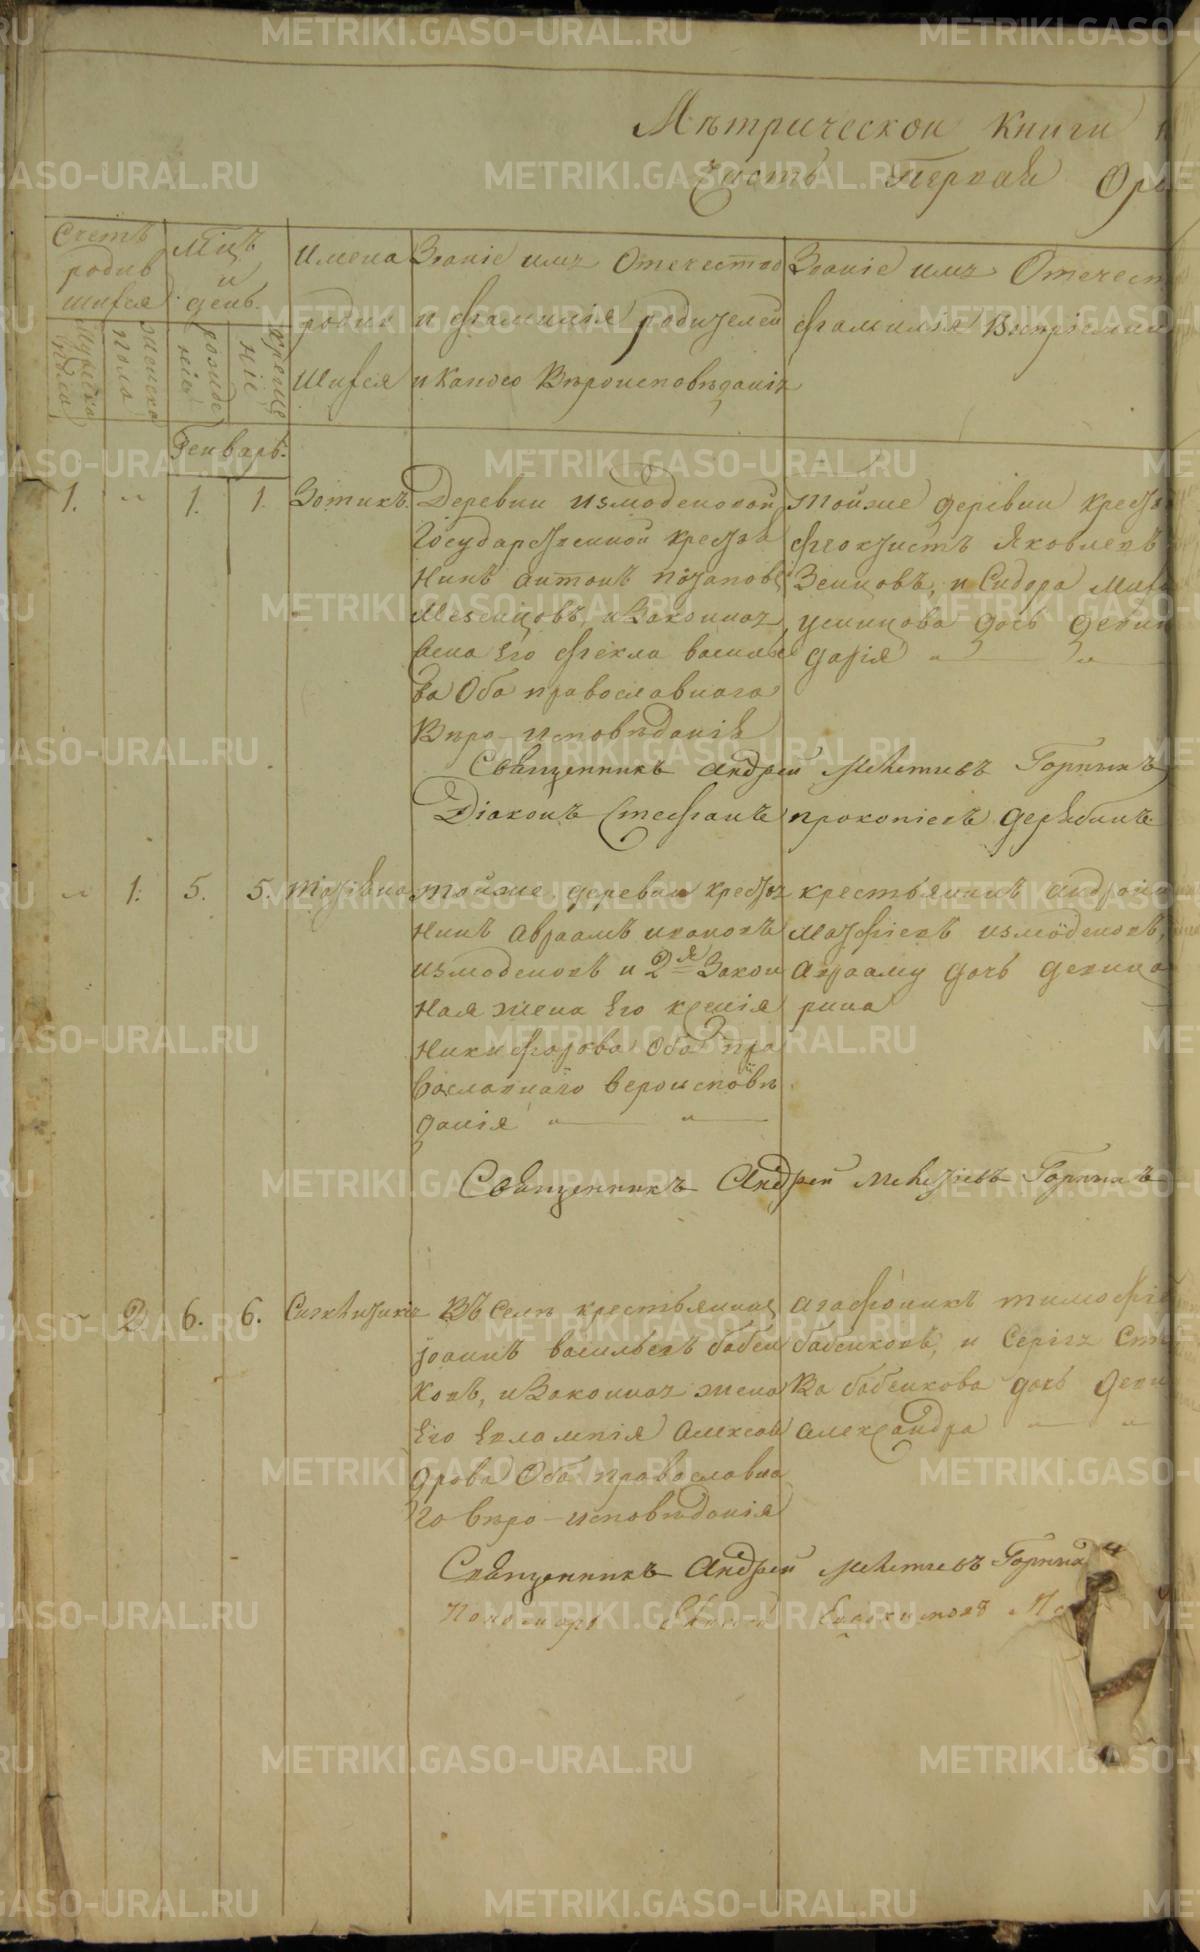 Мѣтрической книги
Часть Первая
Счетъ родившихся
Мѣцъ и день
Имена родившихся
Званіе имя Отечество и фамилія родителей и какого Вѣроисповѣданія
Званіе имя Отечест фамилія Випріемни
Мужска пола
женска пола
рожденія
крещеніе
Генварь.
1. 1. 1. Зотикъ.
Деревни измоденовой
Государственной крестья
нинъ антонъ
Мезенцовъ, и Законная
жена Его фекла василье
ва Оба православнаго
Вѣро-исповѣданія
тойже дерѣвни крестья
феоктистъ Яковлевъ
Зенцовъ, и Сидора
дочь девиц
дарія
Священникъ Андрей Мекетиевъ Горныхъ
Діаконъ Стефанъ прокопіевъ дерябинъ.
1. 5. 5.
тойже деревни крестья
нинъ Авраамъ ивановъ
измоденовъ и 2я Закон
ная жена Его ксенія
Никифорова Оба пра
вославнаго вероисповѣ
данія
крестьянинъ
матфіевъ измоденовъ,
Авраама дочь девица
рина
Священникъ Андрей Мекетіевъ Горныхъ
2 6. 6. Синклитикія
Въ Селѣ крестьянинъ
іоаннъ васильевъ бабен
ковъ, и Законная жена
Его Евлампія Алексан
дрова Оба православна
го вѣро-исповѣданія
агафоникъ тимофіе
бабенковъ, и Сергія Сте
ва бабенкова дочь деви
александра
Священникъ Андрей Мекетиевъ Горных
Пономарь Евдокимовъ
METRIKI.GASO-URAL.RU